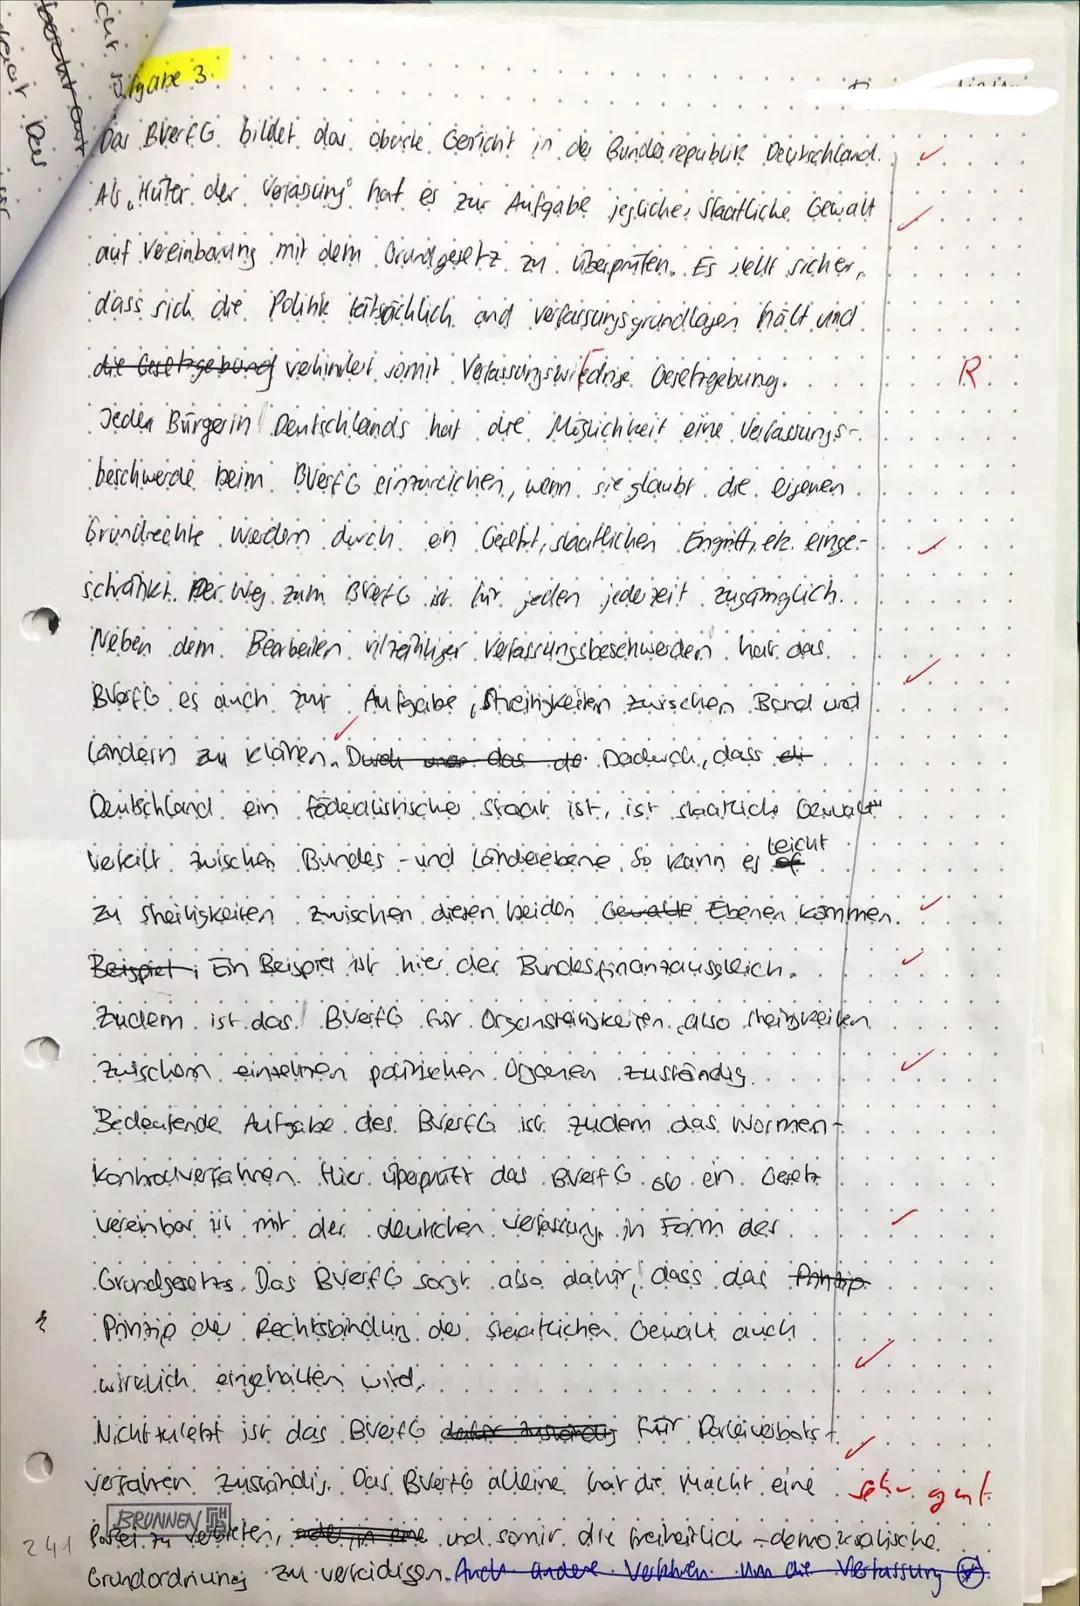 Aufgabe 3.
Das BVerfG bildet das oberste Gericht in der Bundesrepublik Deutschland.
Als „Hüter der Verfassung" hat es zur Aufgabe jegliche staatliche Gewalt
auf Vereinbarung mit dem Grundgesetz zu überprüfen. Es stellt sicher,
dass sich die Politik tatsächlich and verfassungsgrundlagen hält und
die Gesetzgebung verhindert somit Verfassungswiedrige Gesetzgebung.
R
Jeder Bürgerin Deutschlands hat die Möglichkeit eine Verfassungs-
beschwerde beim BVerfG einzureichen, wenn sie glaubt die eigenen
Grundrechte werden durch ein Gesetz, staatlichen Eingriff, etc. einge-
schränkt. Der Weg zum BVerfG ist für jeden jederzeit zugänglich.
Neben dem Bearbeiten Verfassungsbeschwerden hat das
BVerfG es auch zur Aufgabe, Streitigkeiten zwischen Bund und
Ländern zu klären. Durch das Dadurch, dass
Deutschland ein föderalistischer Staat ist, ist staatliche Gewalt
verteilt zwischen Bundes-und Länderebene. So kann es leicht
zu Streitigkeiten zwischen diesen beiden Gewalte Ebenen kommen.
Beispiel: Ein Beispiel ist hier der Bundesfinanzausgleich.
Zudem ist das BVerfG für Organstreitigkeiten, also Streitigkeiten
zwischen einzelnen politischen Organen zuständig.
Bedeutende Aufgabe des BVerfG ist zudem das Normen-
kontrollverfahren. Hier überprüft das BVerfG ob ein Gesetz
vereinbar ist mit der deutschen Verfassung in Form des
Grundgesetzs. Das BVerfG sorgt also dafür, dass das Prinzip
Prinzip der Rechtsbindung der staatlichen Gewalt auch
wirklich eingehalten wird.
Nicht zuletzt ist das BVerfG dafür zuständig für Parteiverbots-
verfahren zuständig. Das BVerfG alleine hat die Macht eine
sehr gut
BRUNNEN
Partei zu verbieten, und somit die freiheitlich-demokratische
241
Grundordnung zu verteidigen. Auch andere Verfahren um die Verfassung